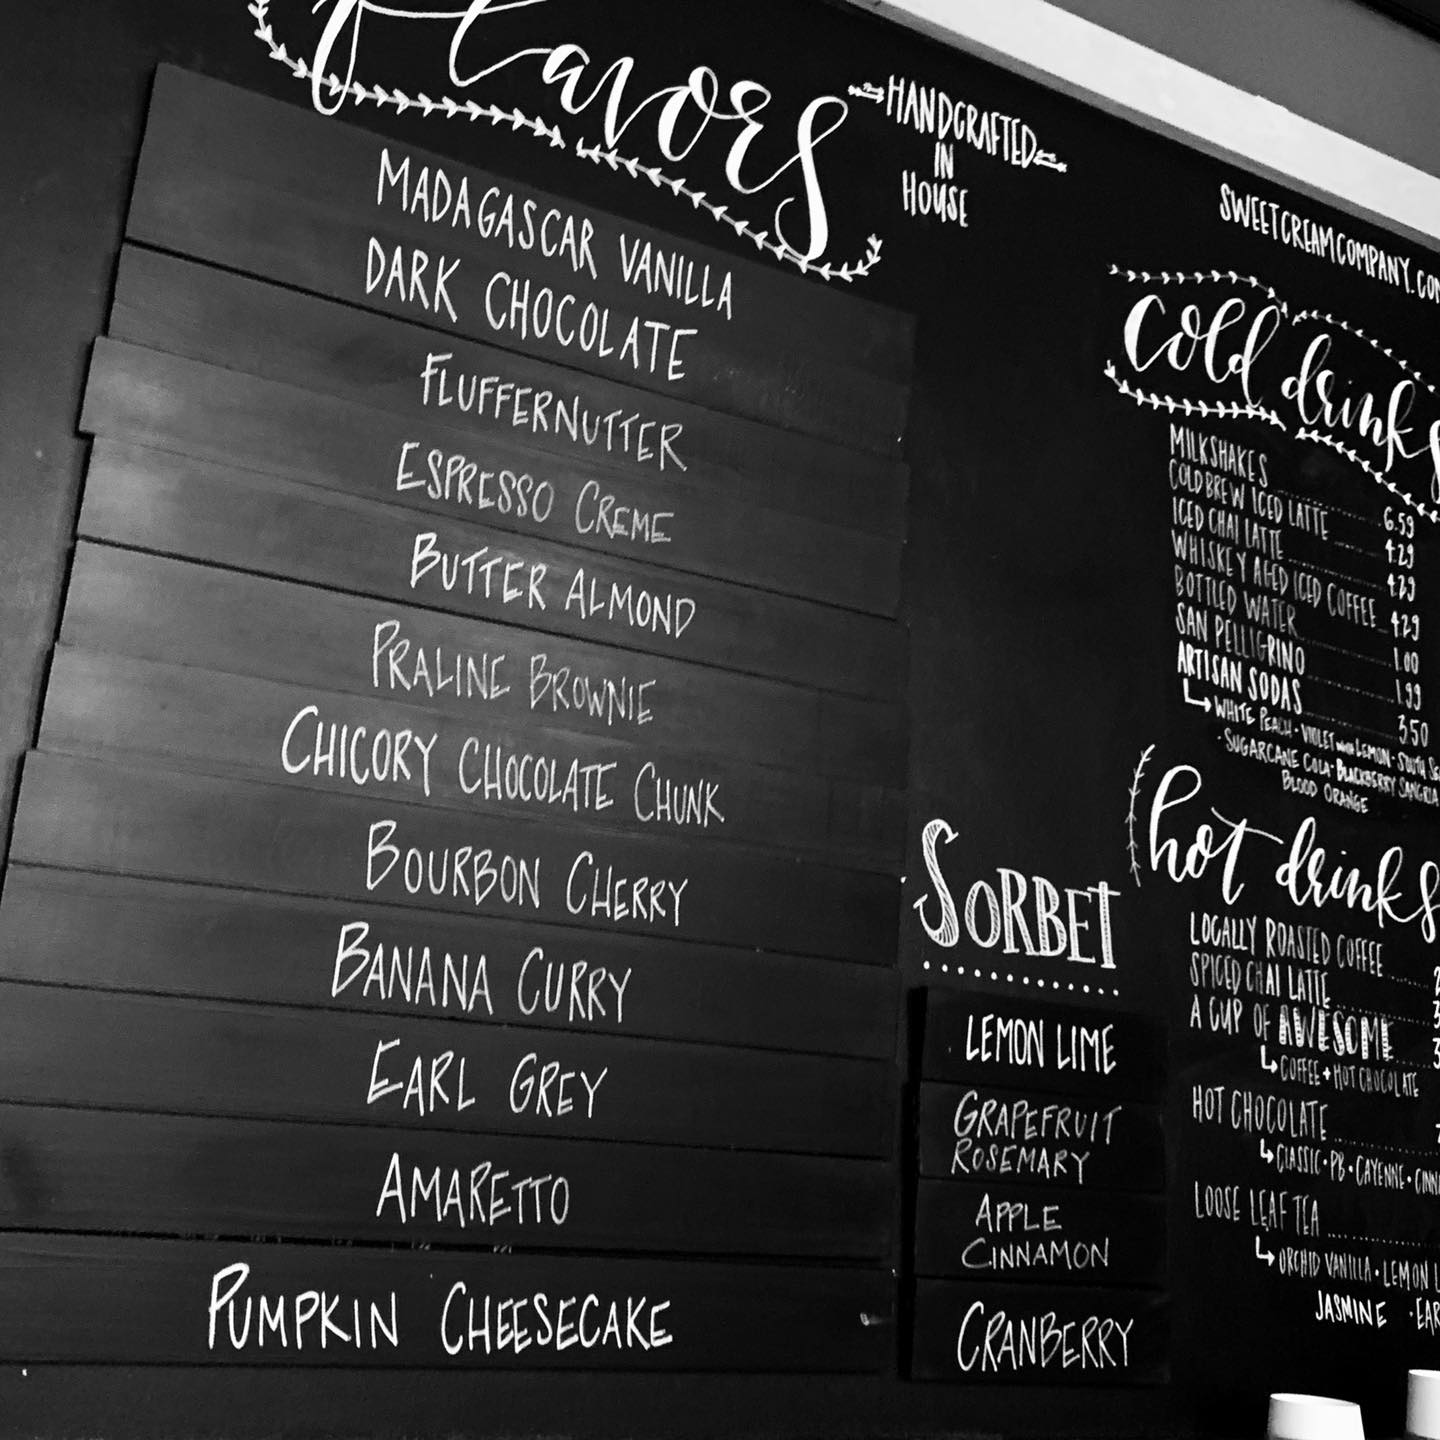 flavors
HANDCRAFTED
IN
HOUSE
MADAGASCAR VANILLA
DARK CHOCOLATE
FLUFFERNUTTER
ESPRESSO CREME
BUTTER ALMOND
PRALINE BROWNIE
CHICORY CHOCOLATE CHUNK
BOURBON CHERRY
BANANA CURRY
EARL GREY
AMARETTO
PUMPKIN CHEESECAKE
SORBET
LEMON LIME
GRAPEFRUIT
ROSEMARY
APPLE
CINNAMON
CRANBERRY
SWEETCREAMCOMPANY.CO
cold drinks
MILKSHAKES 6.59
COLD BREW ICED LATTE 4.29
ICED CHAI LATTE 4.29
WHISKEY AGED ICED COFFEE 4.29
BOTTLED WATER 1.00
SAN PELLIGRINO 1.99
ARTISAN SODAS 3.50
WHITE PEACH • VIOLET WITH LEMON • SOUTH SE
• SUGARCANE COLA • BLACKBERRY SANGRIA
BLOOD ORANGE
hot drinks
LOCALLY ROASTED COFFEE 2
SPICED CHAI LATTE 3
A CUP OF AWESOME 3
COFFEE + HOT CHOCOLATE
HOT CHOCOLATE
CLASSIC • PB • CAYENNE • CINN
LOOSE LEAF TEA
ORCHID VANILLA • LEMON L
JASMINE • EAR